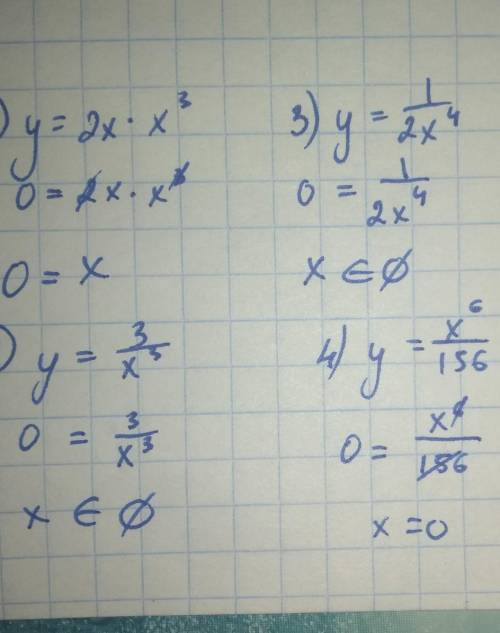 ) y = 2x · x³
0 = 2x · x³
0 = x
) y = 3/x³
0 = 3/x³
x ∈ ∅
3) y = 1/2x⁴
0 = 1/2x⁴
x ∈ ∅
4) y = x⁶/156
0 = x⁶/156
x = 0